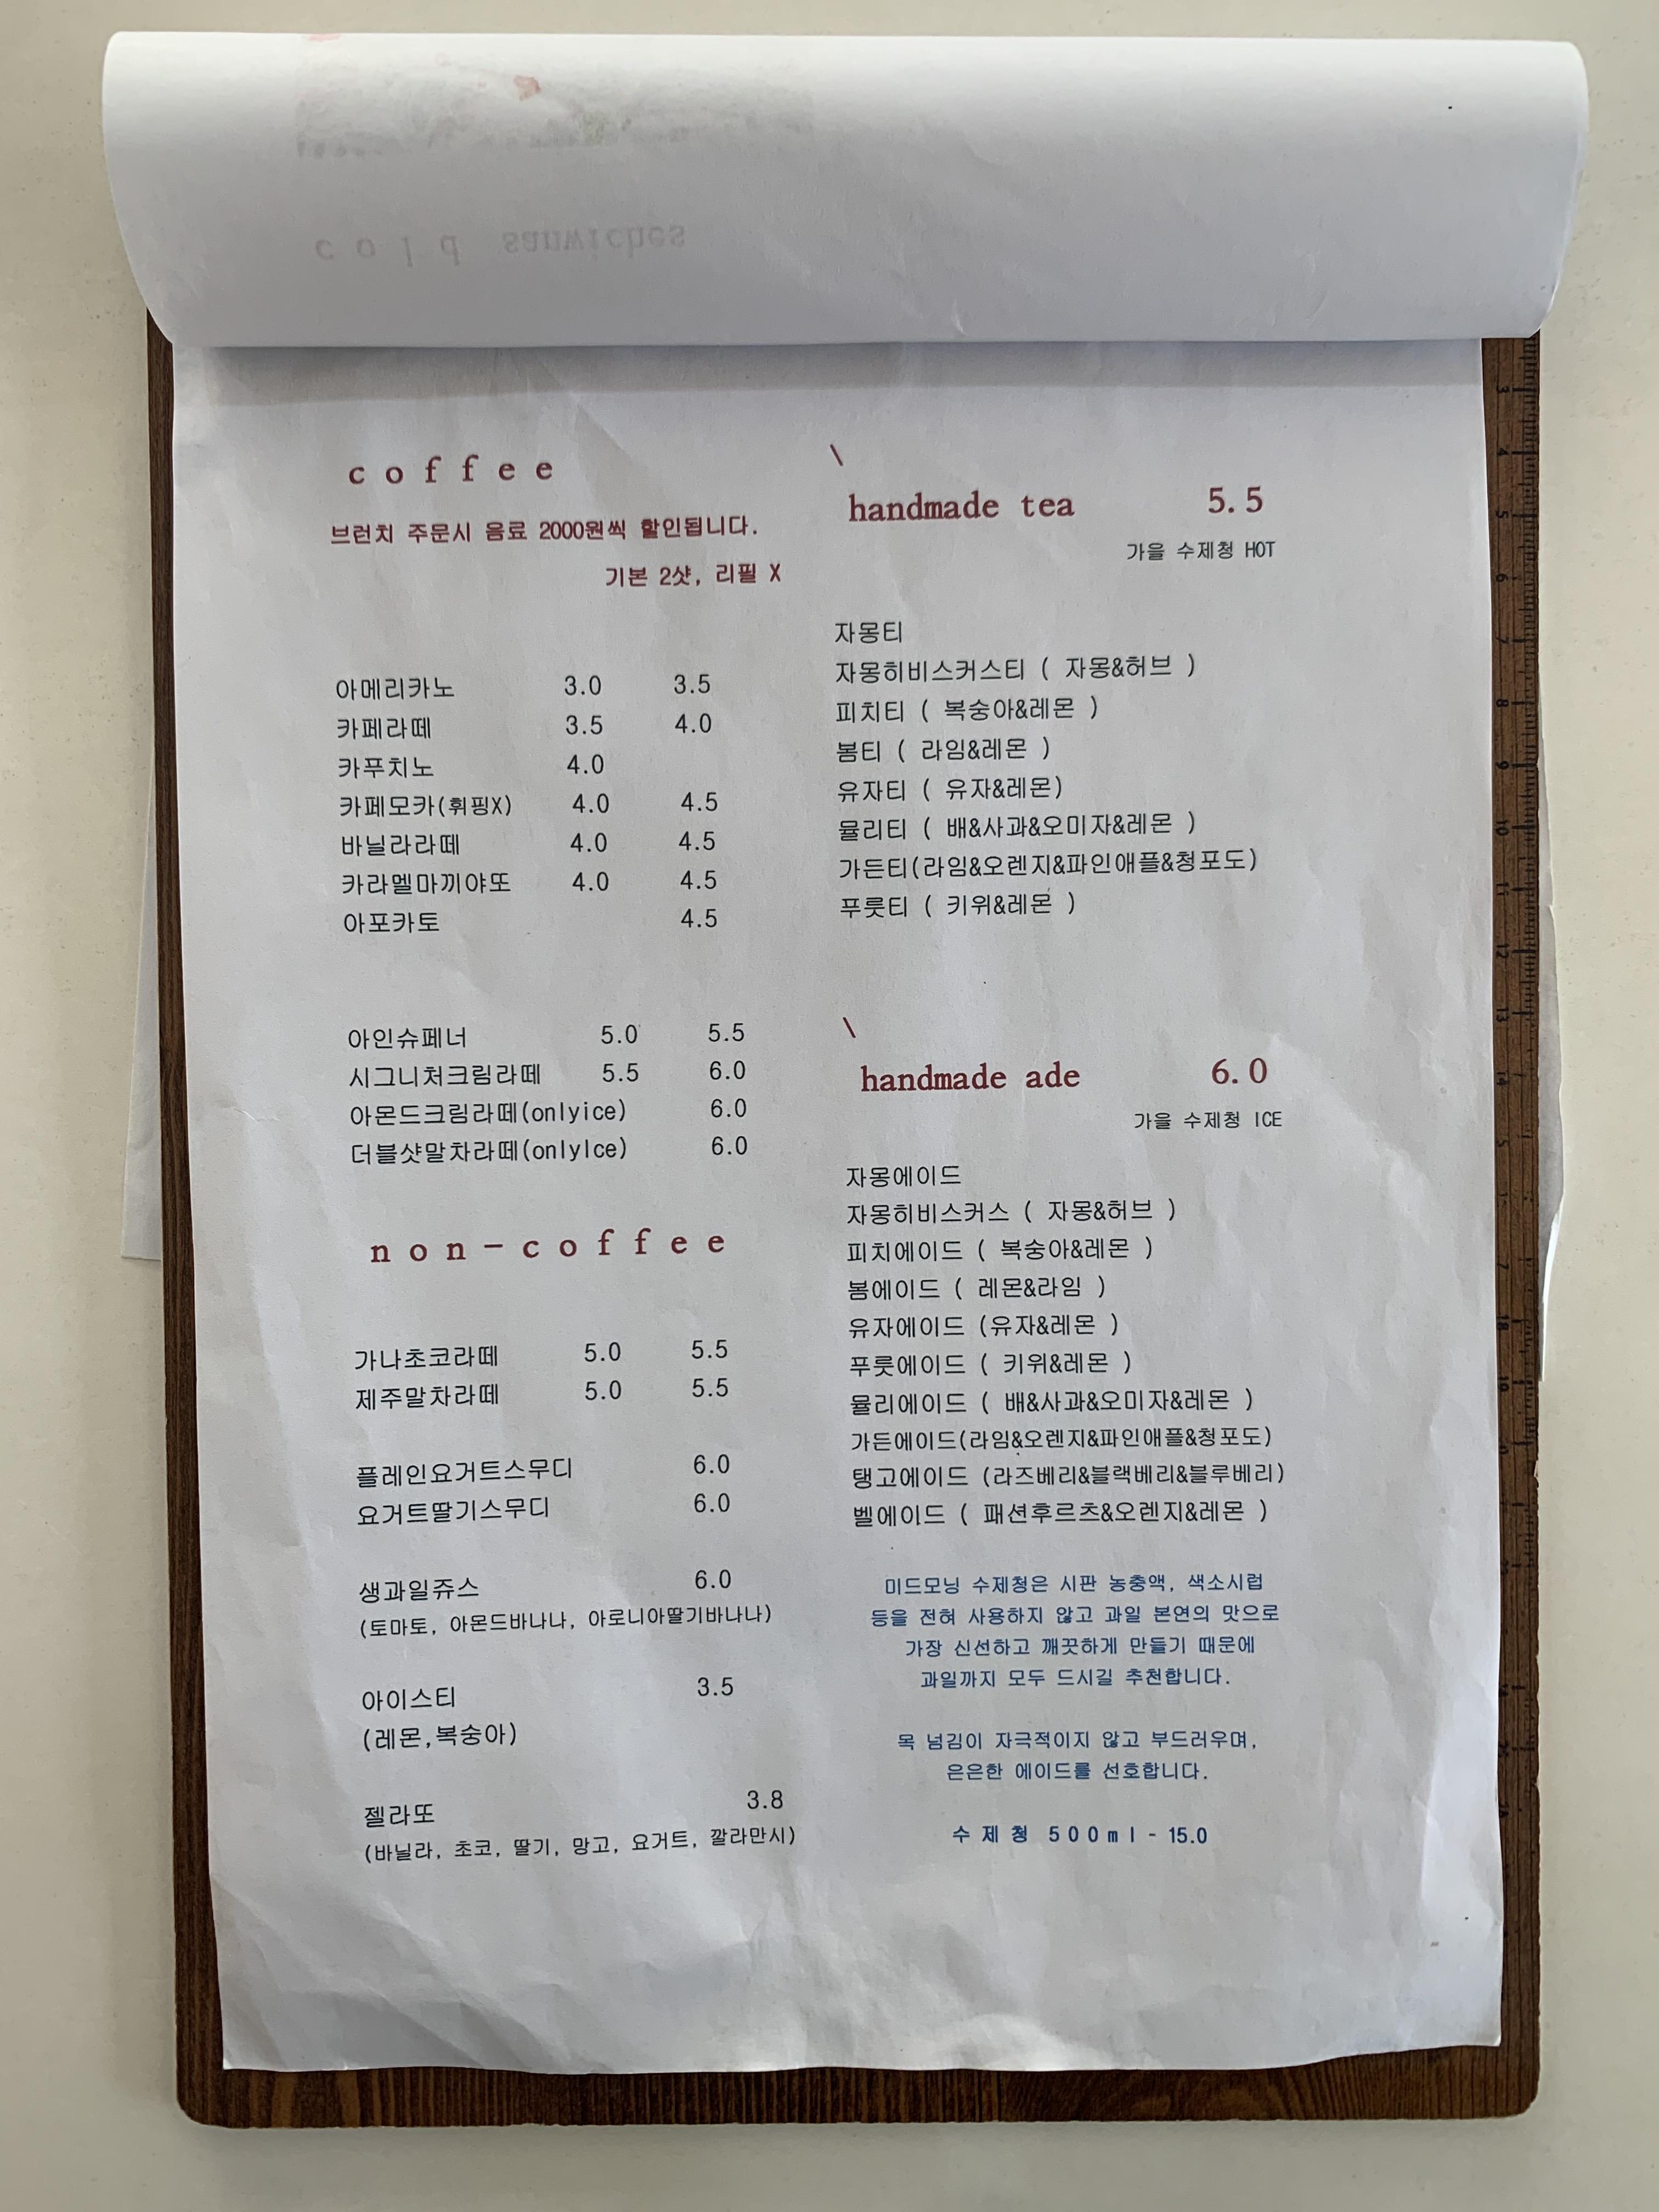 cold sanwiches
coffee
브런치 주문시 음료 2000원씩 할인됩니다.
기본 2샷, 리필 X
아메리카노 3.0 3.5
카페라떼 3.5 4.0
카푸치노 4.0
카페모카(휘핑X) 4.0 4.5
바닐라라떼 4.0 4.5
카라멜마끼야또 4.0 4.5
아포카토 4.5
아인슈페너 5.0 5.5
시그니처크림라떼 5.5 6.0
아몬드크림라떼(onlyice) 6.0
더블샷말차라떼(onlyIce) 6.0
non-coffee
가나초코라떼 5.0 5.5
제주말차라떼 5.0 5.5
플레인요거트스무디 6.0
요거트딸기스무디 6.0
생과일쥬스 6.0
(토마토, 아몬드바나나, 아로니아딸기바나나)
아이스티 3.5
(레몬,복숭아)
젤라또 3.8
(바닐라, 초코, 딸기, 망고, 요거트, 깔라만시)
\
handmade tea 5.5
가을 수제청 HOT
자몽티
자몽히비스커스티 ( 자몽&허브 )
피치티 ( 복숭아&레몬 )
봄티 ( 라임&레몬 )
유자티 ( 유자&레몬)
뮬리티 ( 배&사과&오미자&레몬 )
가든티(라임&오렌지&파인애플&청포도)
푸룻티 ( 키위&레몬 )
\
handmade ade 6.0
가을 수제청 ICE
자몽에이드
자몽히비스커스 ( 자몽&허브 )
피치에이드 ( 복숭아&레몬 )
봄에이드 ( 레몬&라임 )
유자에이드 (유자&레몬 )
푸룻에이드 ( 키위&레몬 )
뮬리에이드 ( 배&사과&오미자&레몬 )
가든에이드(라임&오렌지&파인애플&청포도)
탱고에이드 (라즈베리&블랙베리&블루베리)
벨에이드 ( 패션후르츠&오렌지&레몬 )
미드모닝 수제청은 시판 농충액, 색소시럽
등을 전혀 사용하지 않고 과일 본연의 맛으로
가장 신선하고 깨끗하게 만들기 때문에
과일까지 모두 드시길 추천합니다.
목 넘김이 자극적이지 않고 부드러우며,
은은한 에이드를 선호합니다.
수제청 500ml - 15.0
3
4
5
6
7
8
9
10
11
12
13
14